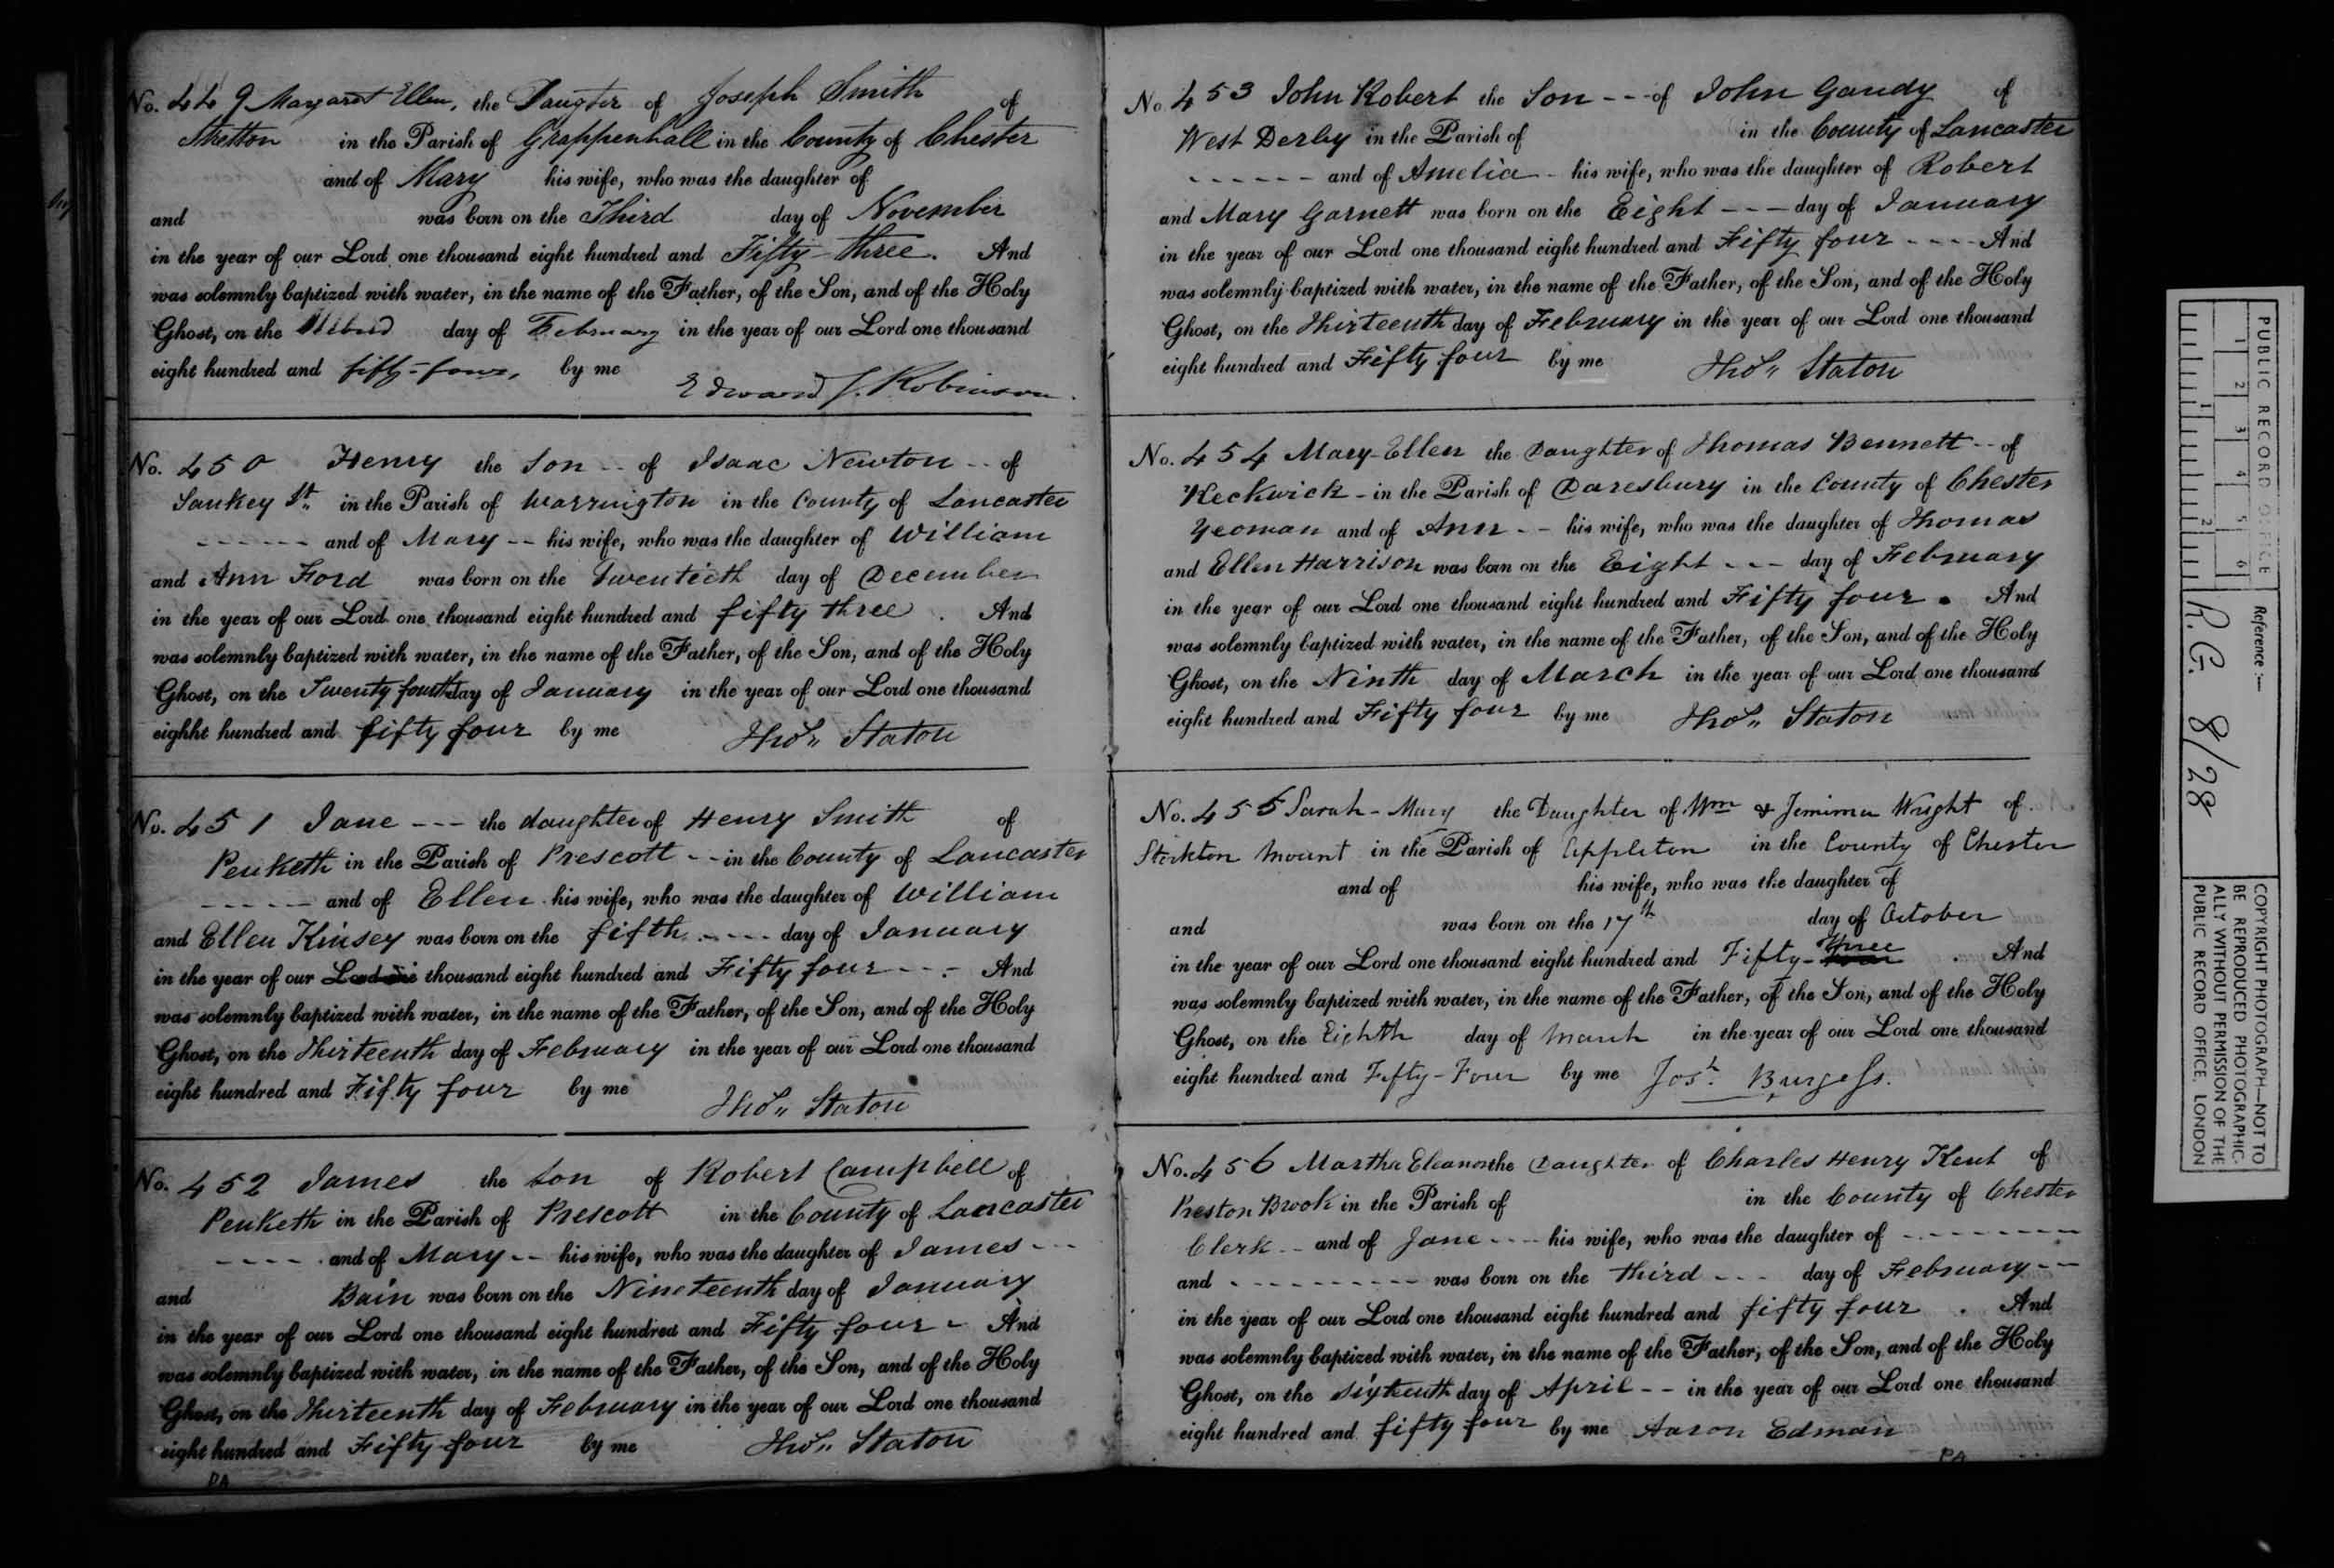 No. 449 Margaret Ellen, the Daugter of Joseph Smith of
Stretton in the Parish of Grappenhall in the County of Chester
and of Mary his wife, who was the daughter of
and was born on the Third day of November
in the year of our Lord one thousand eight hundred and Fifty-three. And
was solemnly baptized with water, in the name of the Father, of the Son, and of the Holy
Ghost, on the day of February in the year of our Lord one thousand
eight hundred and fifty-four, by me Edward J. Robinson.
No. 450 Henry the Son -- of Isaac Newton -- of
Sankey St. in the Parish of Warrington in the County of Lancaster
------ and of Mary -- his wife, who was the daughter of William
and Ann Ford was born on the Twentieth day of December
in the year of our Lord one thousand eight hundred and fifty three . And
was solemnly baptized with water, in the name of the Father, of the Son, and of the Holy
Ghost, on the Twenty fourth day of January in the year of our Lord one thousand
eighht hundred and fifty four by me Thos. Staton
No. 451 Jane --- the daughter of Henry Smith of
Penketh in the Parish of Prescott -- in the County of Lancaster
----- and of Ellen his wife, who was the daughter of William
and Ellen Kinsey was born on the fifth ---- day of January
in the year of our Lord one thousand eight hundred and Fifty four --- And
was solemnly baptized with water, in the name of the Father, of the Son, and of the Holy
Ghost, on the Thirteenth day of February in the year of our Lord one thousand
eight hundred and Fifty four by me Thos. Staton
No. 452 James the Son of Robert Campbell of
Penketh in the Parish of Prescott in the County of Lancaster
---- and of Mary -- his wife, who was the daughter of James ---
and Bain was born on the Nineteenth day of January
in the year of our Lord one thousand eight hundred and Fifty four - And
was solemnly baptized with water, in the name of the Father, of the Son, and of the Holy
Ghost, on the Thirteenth day of February in the year of our Lord one thousand
eight hundred and Fifty four by me Thos. Staton
PA
No. 453 John Robert the Son --- of John Gandy of
West Derby in the Parish of in the County of Lancaster
------ and of Amelia - his wife, who was the daughter of Robert
and Mary Garnett was born on the Eight --- day of January
in the year of our Lord one thousand eight hundred and Fifty four ---- And
was solemnly baptized with water, in the name of the Father, of the Son, and of the Holy
Ghost, on the Thirteenth day of February in the year of our Lord one thousand
eight hundred and Fifty four by me Thos. Staton
No. 454 Mary-Ellen the Daughter of Thomas Bennett -- of
Keckwick - in the Parish of Daresbury in the County of Chester
Yeoman and of Ann -- his wife, who was the daughter of Thomas
and Ellen Harrison was born on the Eight --- day of February
in the year of our Lord one thousand eight hundred and Fifty four . And
was solemnly baptized with water, in the name of the Father, of the Son, and of the Holy
Ghost, on the Ninth day of March in the year of our Lord one thousand
eight hundred and Fifty four by me Thos. Staton
No. 455 Sarah-Mary the Daughter of Wm & Jemima Wright of
Stockton Mount in the Parish of Appleton in the County of Chester
and of his wife, who was the daughter of
and was born on the 17th day of October
in the year of our Lord one thousand eight hundred and Fifty-Three . And
was solemnly baptized with water, in the name of the Father, of the Son, and of the Holy
Ghost, on the Eighth day of March in the year of our Lord one thousand
eight hundred and Fifty-Four by me Josh. Burgess.
No. 456 Martha Eleanor the Daughter of Charles Henry Kent of
Preston Brook in the Parish of in the County of Chester
Clerk -- and of Jane ---- his wife, who was the daughter of --------
and --------- was born on the third --- day of February --
in the year of our Lord one thousand eight hundred and fifty four . And
was solemnly baptized with water, in the name of the Father, of the Son, and of the Holy
Ghost, on the sixteenth day of April -- in the year of our Lord one thousand
eight hundred and fifty four by me Aaron Edman
PA
PUBLIC RECORD OFFICE
1 2 3 4 5 6
1 2
Reference :-
R.G. 8/28
COPYRIGHT PHOTOGRAPH—NOT TO
BE REPRODUCED PHOTOGRAPHIC-
ALLY WITHOUT PERMISSION OF THE
PUBLIC RECORD OFFICE, LONDON